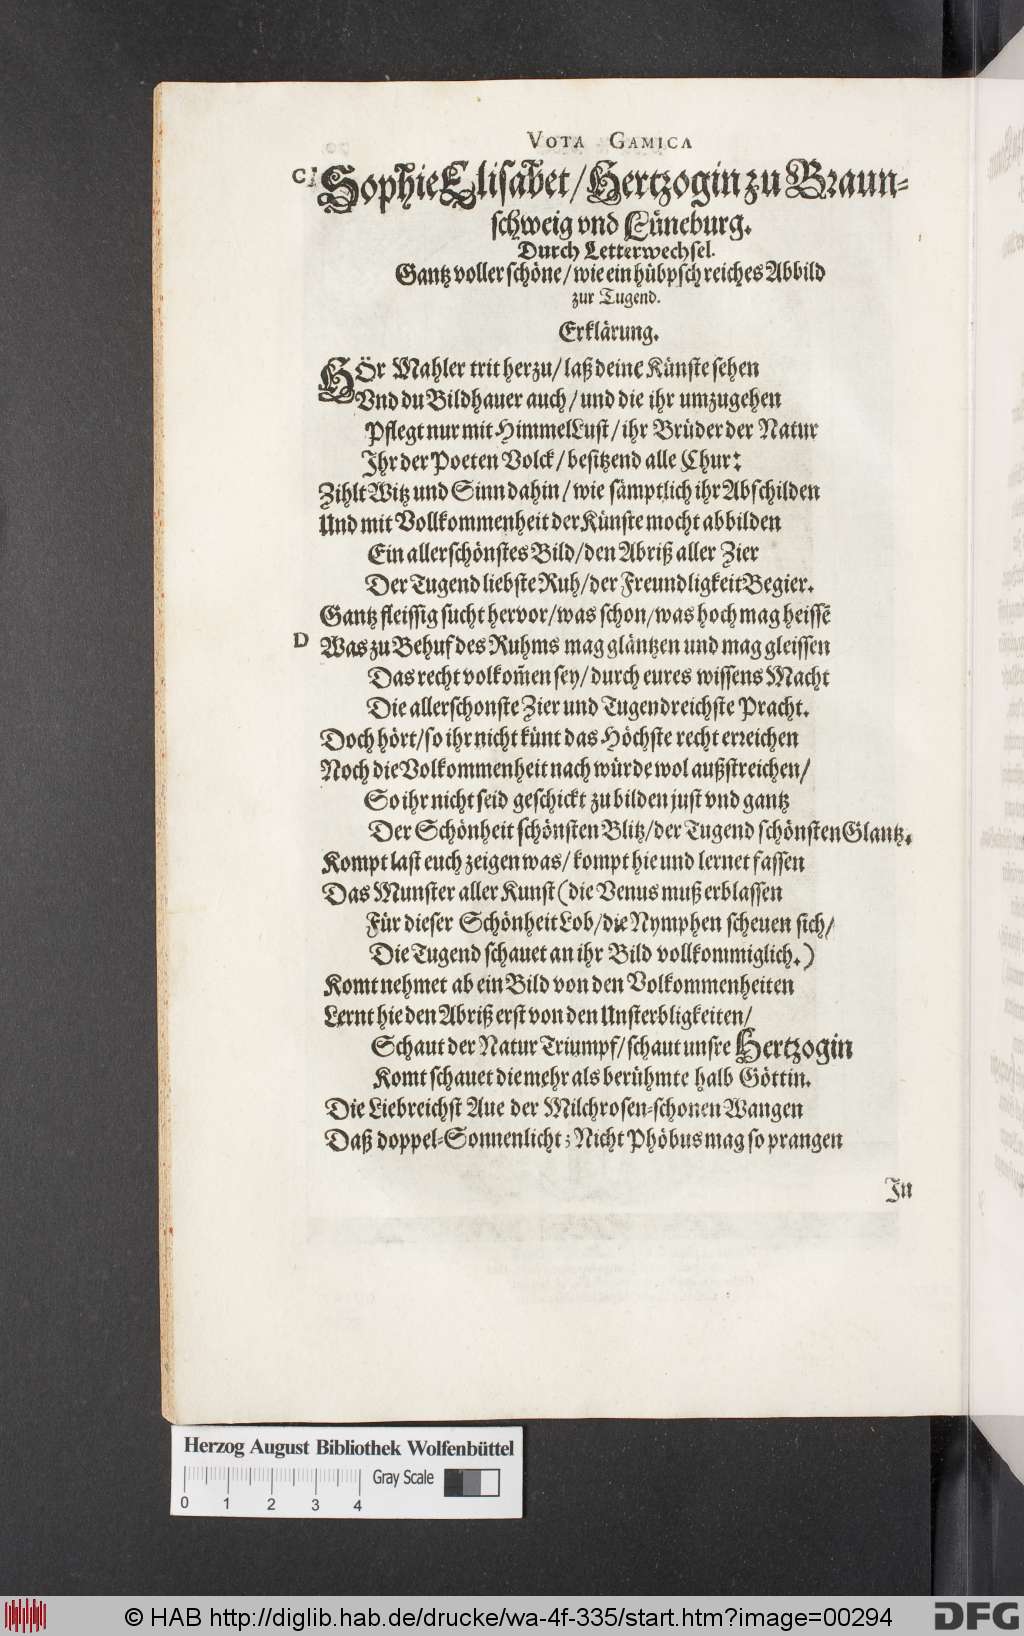 VOTA GAMICA
C
Sophie Elisabet / Hertzogin zu Braun-
schweig vnd Lüneburg.
Durch Letterwechsel.
Gantz voller schöne / wie ein hübpsch reiches Abbild
zur Tugend.
Erklärung.
HÖr Mahler trit herzu / laß deine Künste sehen
Vnd du Bildhauer auch / und die ihr umzugehen
Pflegt nur mit HimmelLust / ihr Brüder der Natur
Ihr der Poeten Volck / besitzend alle Chur:
Zihlt Witz und Sinn dahin / wie sämptlich ihr Abschilden
Und mit Vollkommenheit der Künste mocht abbilden
Ein allerschönstes Bild / den Abriß aller Zier
Der Tugend liebste Ruh / der Freundligkeit Begier.
Gantz fleissig sucht hervor / was schon / was hoch mag heissē
D
Was zu Behuf des Ruhms mag gläntzen und mag gleissen
Das recht volkom̃en sey / durch eures wissens Macht
Die allerschonste Zier und Tugendreichste Pracht.
Doch hört / so ihr nicht künt das Höchste recht erreichen
Noch die Volkommenheit nach würde wol außstreichen /
So ihr nicht seid geschickt zu bilden just vnd gantz
Der Schönheit schönsten Blitz / der Tugend schönsten Glantz.
Kompt last euch zeigen was / kompt hie und lernet fassen
Das Munster aller Kunst (die Venus muß erblassen
Für dieser Schönheit Lob / die Nymphen scheuen sich /
Die Tugend schauet an ihr Bild vollkommiglich.)
Komt nehmet ab ein Bild von den Volkommenheiten
Lernt hie den Abriß erst von den Unsterbligkeiten /
Schaut der Natur Triumpf / schaut unsre Hertzogin
Komt schauet die mehr als berühmte halb Göttin.
Die Liebreichst Aue der Milchrosen-schonen Wangen
Daß doppel-Sonnenlicht; Nicht Phöbus mag so prangen
In
Herzog August Bibliothek Wolfenbüttel
Gray Scale
0 1 2 3 4
© HAB http://diglib.hab.de/drucke/wa-4f-335/start.htm?image=00294
DFG